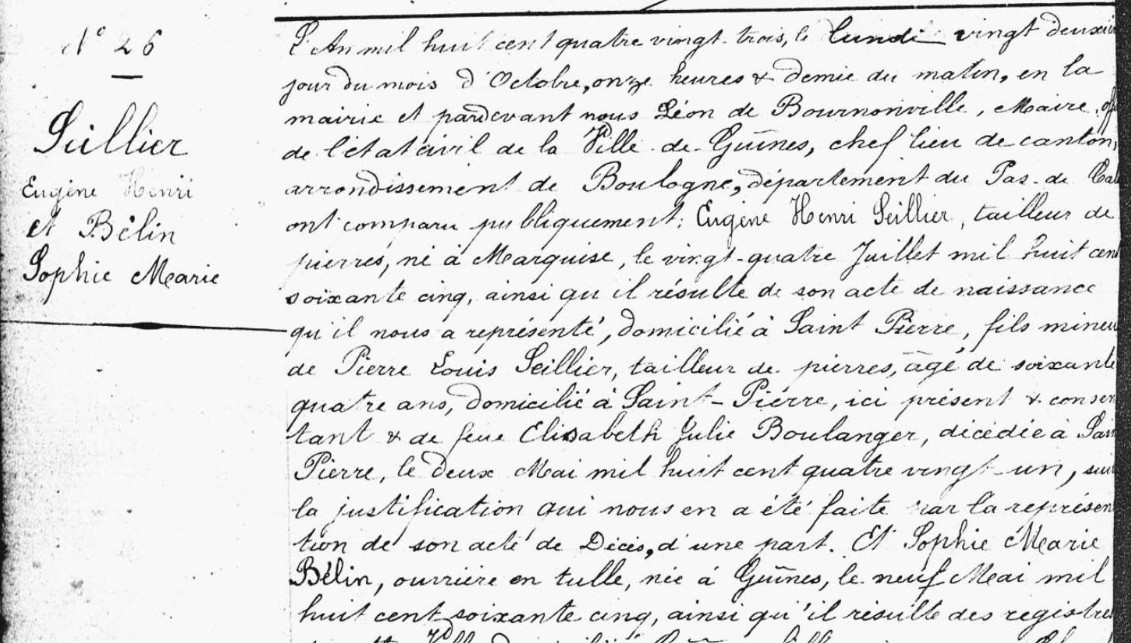 N° 26
Seillier
Eugène Henri
et Bélin
Sophie Marie
L'An mil huit cent quatre vingt-trois, le lundi vingt deuxiè
jour du mois d'Octobre, onze heures & demie du matin, en la
mairie et pardevant nous Léon de Bournonville, Maire, off
de l'état civil de la Ville de Guînes, chef lieu de canton,
arrondissement de Boulogne, département du Pas-de Cal
ont comparu publiquement: Eugène Henri Seillier, tailleur de
pierres, né à Marquise, le vingt-quatre Juillet mil huit cent
soixante cinq, ainsi qu'il résulte de son acte de naissance
qu'il nous a représenté, domicilié à Saint Pierre, fils mineu
de Pierre Louis Seillier, tailleur de pierres, âgé de soixante
quatre ans, domicilié à Saint-Pierre, ici présent & consen
tant & de feue Elisabeth Julie Boulanger, décédée à Sain
Pierre, le deux Mai mil huit cent quatre vingt-un, sui
la justification qui nous en a été faite par la représen
tion de son acte de Décès, d'une part. Et Sophie Marie
Bélin, ouvrière en tulle, née à Guînes, le neuf Mai mil
huit cent soixante cinq, ainsi qu'il résulte des registres